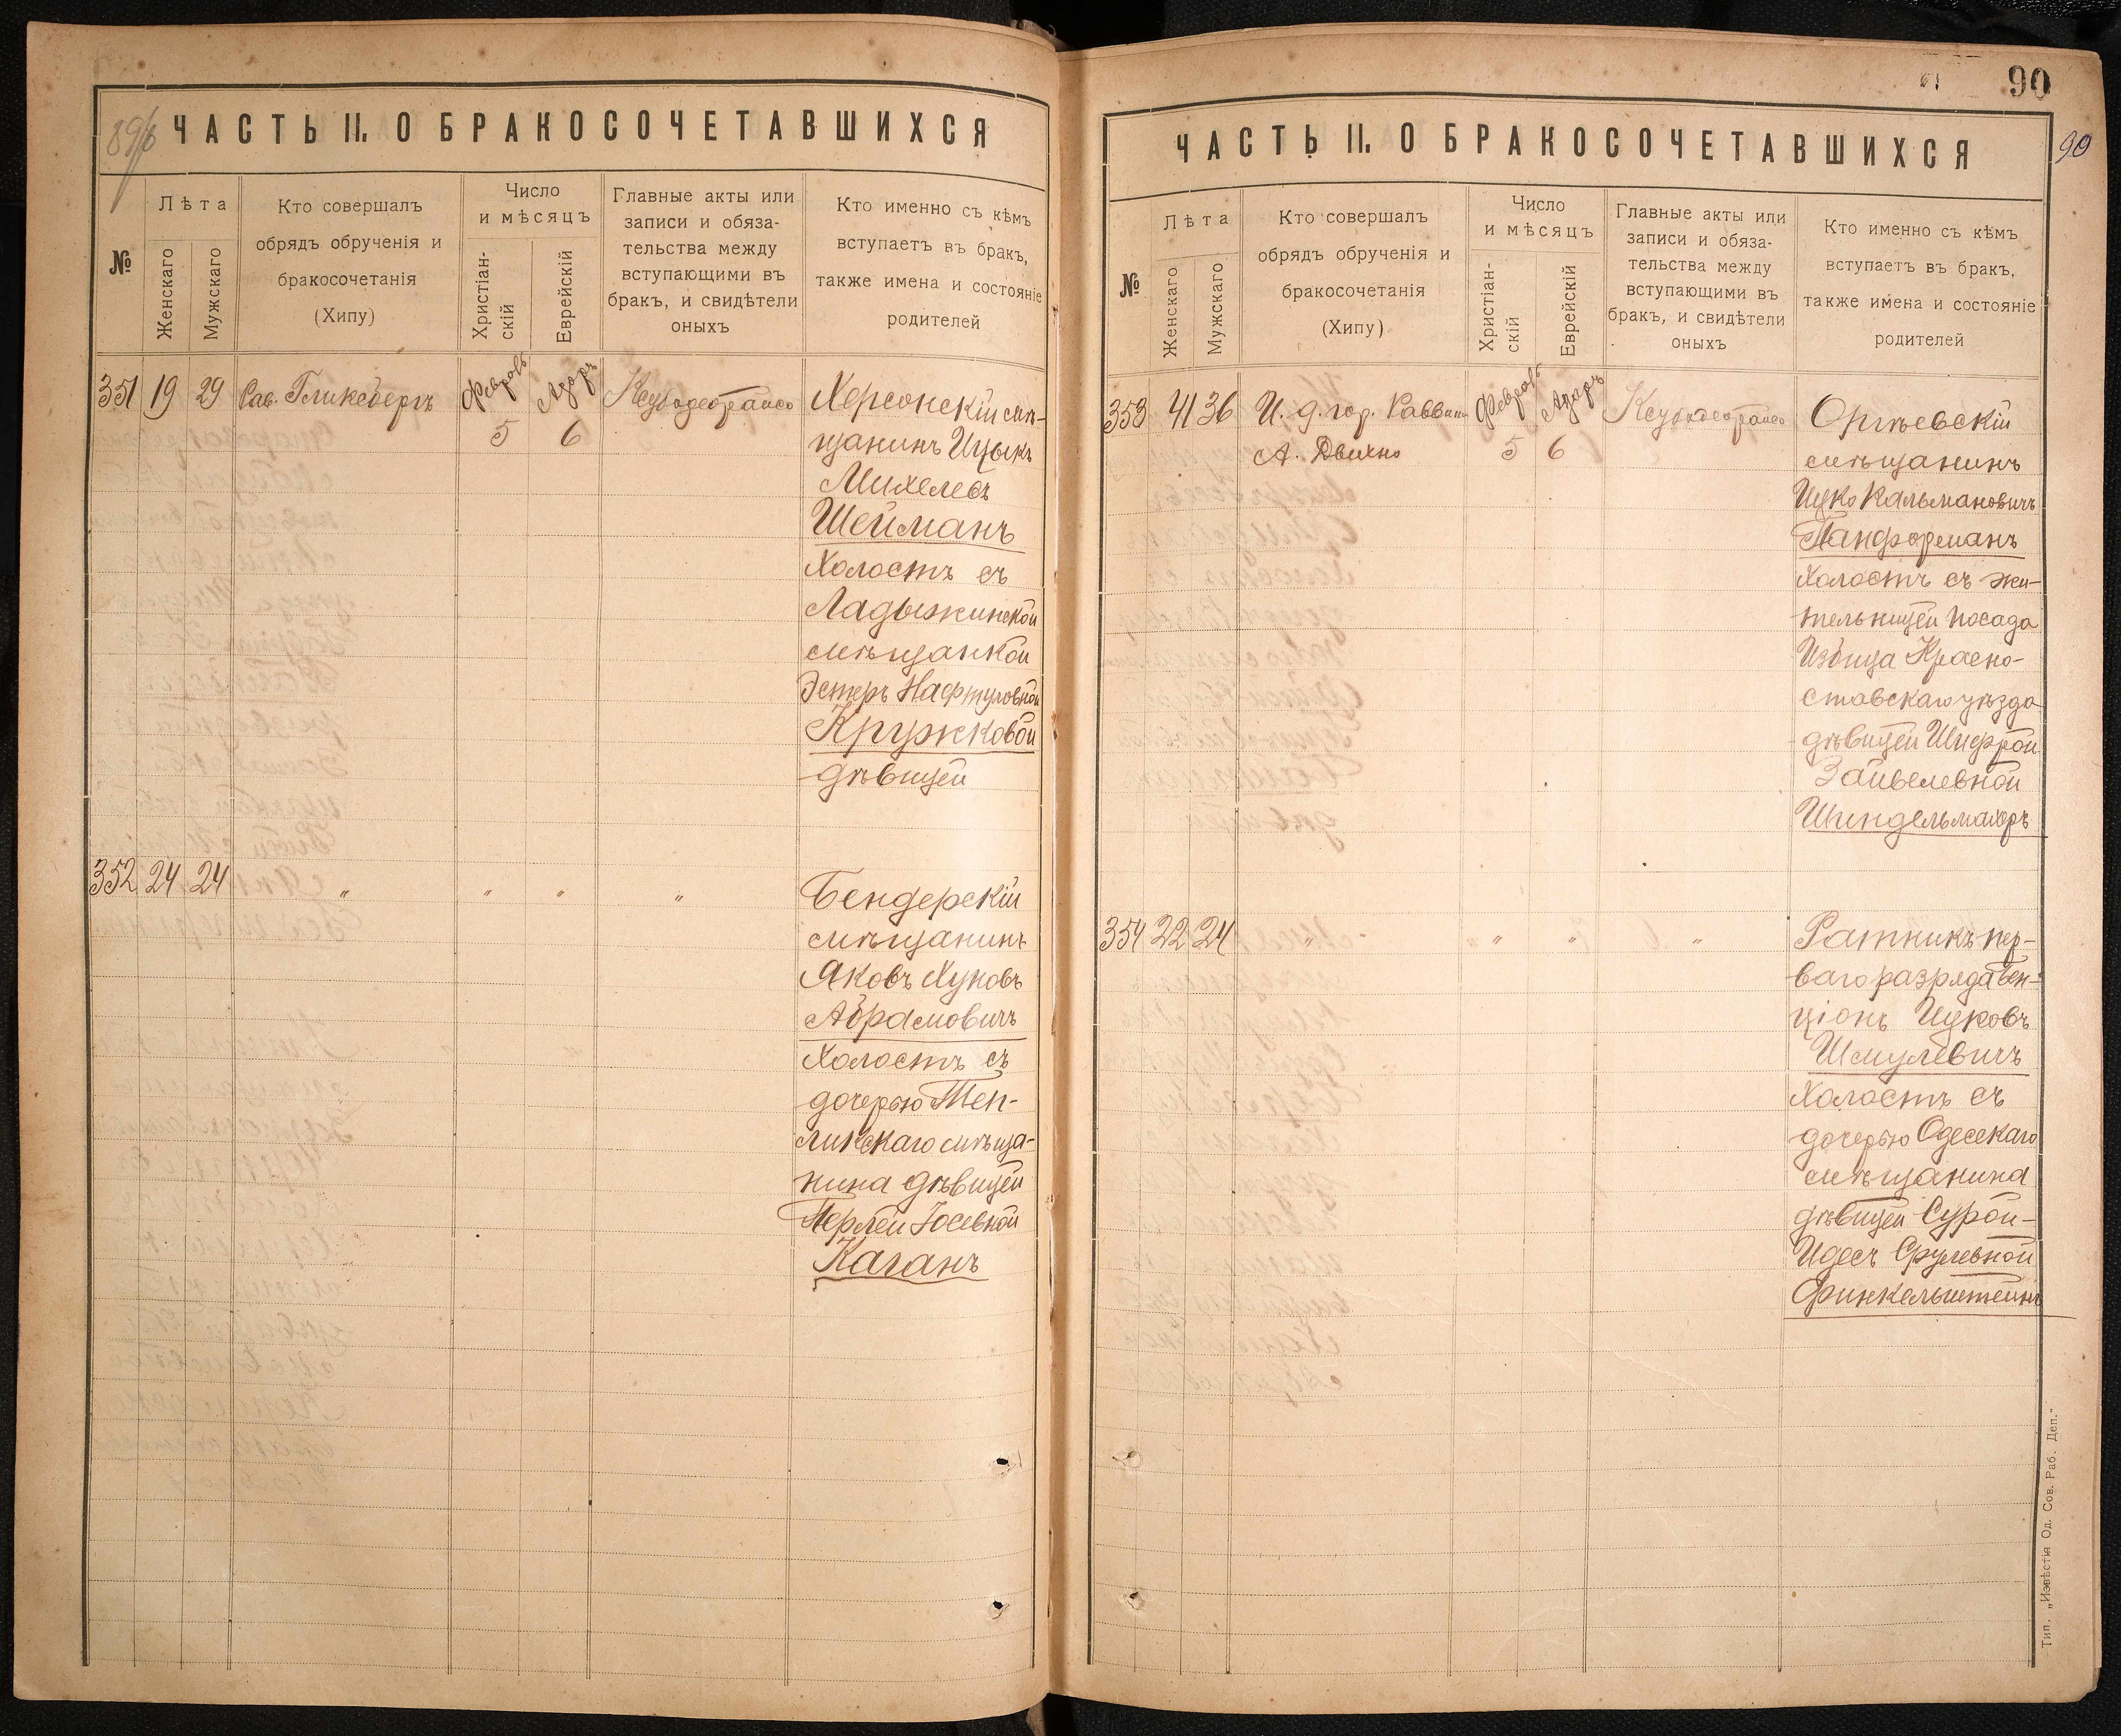 89/б
ЧАСТЬ II. О БРАКОСОЧЕТАВШИХСЯ
№
Лѣта
Женскаго
Мужскаго
Кто совершалъ
обрядъ обрученія и
бракосочетанія
(Хипу)
Число
и мѣсяцъ
Христіан-
скій
Еврейскій
Главные акты или
записи и обяза-
тельства между
вступающими въ
бракъ, и свидѣтели
оныхъ
Кто именно съ кѣмъ
вступаетъ въ бракъ,
также имена и состояніе
родителей
351 19 29 Сав. Гликсбергъ Февраль Адаръ
5 6
Херсонскій мѣ-
щанинъ Ицыкъ
Михелевъ
Шейманъ
Холостъ съ
Ладыжинской
мѣщанкой
Эстеръ Нафтуловной
Кружковой
дѣвицей
352 24 24 " " " "
Бендерскій
мѣщанинъ
Яковъ Хуновъ
Абрамовичъ
Холостъ съ
дочерью Теп-
ликскаго мѣща-
нина дѣвицей
Перлей Іосевной
Каганъ
90
90
ЧАСТЬ II. О БРАКОСОЧЕТАВШИХСЯ
№
Лѣта
Женскаго
Мужскаго
Кто совершалъ
обрядъ обрученія и
бракосочетанія
(Хипу)
Число
и мѣсяцъ
Христіан-
скій
Еврейскій
Главные акты или
записи и обяза-
тельства между
вступающими въ
бракъ, и свидѣтели
оныхъ
Кто именно съ кѣмъ
вступаетъ въ бракъ,
также имена и состояніе
родителей
353 41 36 И. д. гор. Раввина Февраль Адаръ
А. Двихно 5 6
Оргѣевскій
мѣщанинъ
Ицко Кальмановичъ
Панформанъ
Холостъ съ жи-
тельницей посада
Избица Красно-
ставскаго уѣзда
дѣвицей Шифрой
Зайвелевной
Шиндельмахеръ
354 22 24 " " " "
Ратникъ пер-
ваго разряда Бен-
ціонъ Ицковъ
Шмулевичъ
Холостъ съ
дочерью Одесскаго
мѣщанина
дѣвицей Сурой-
Идесъ Срулевной
Финкельштейнъ
Тип. „Извѣстія Од. Сов. Раб. Деп."